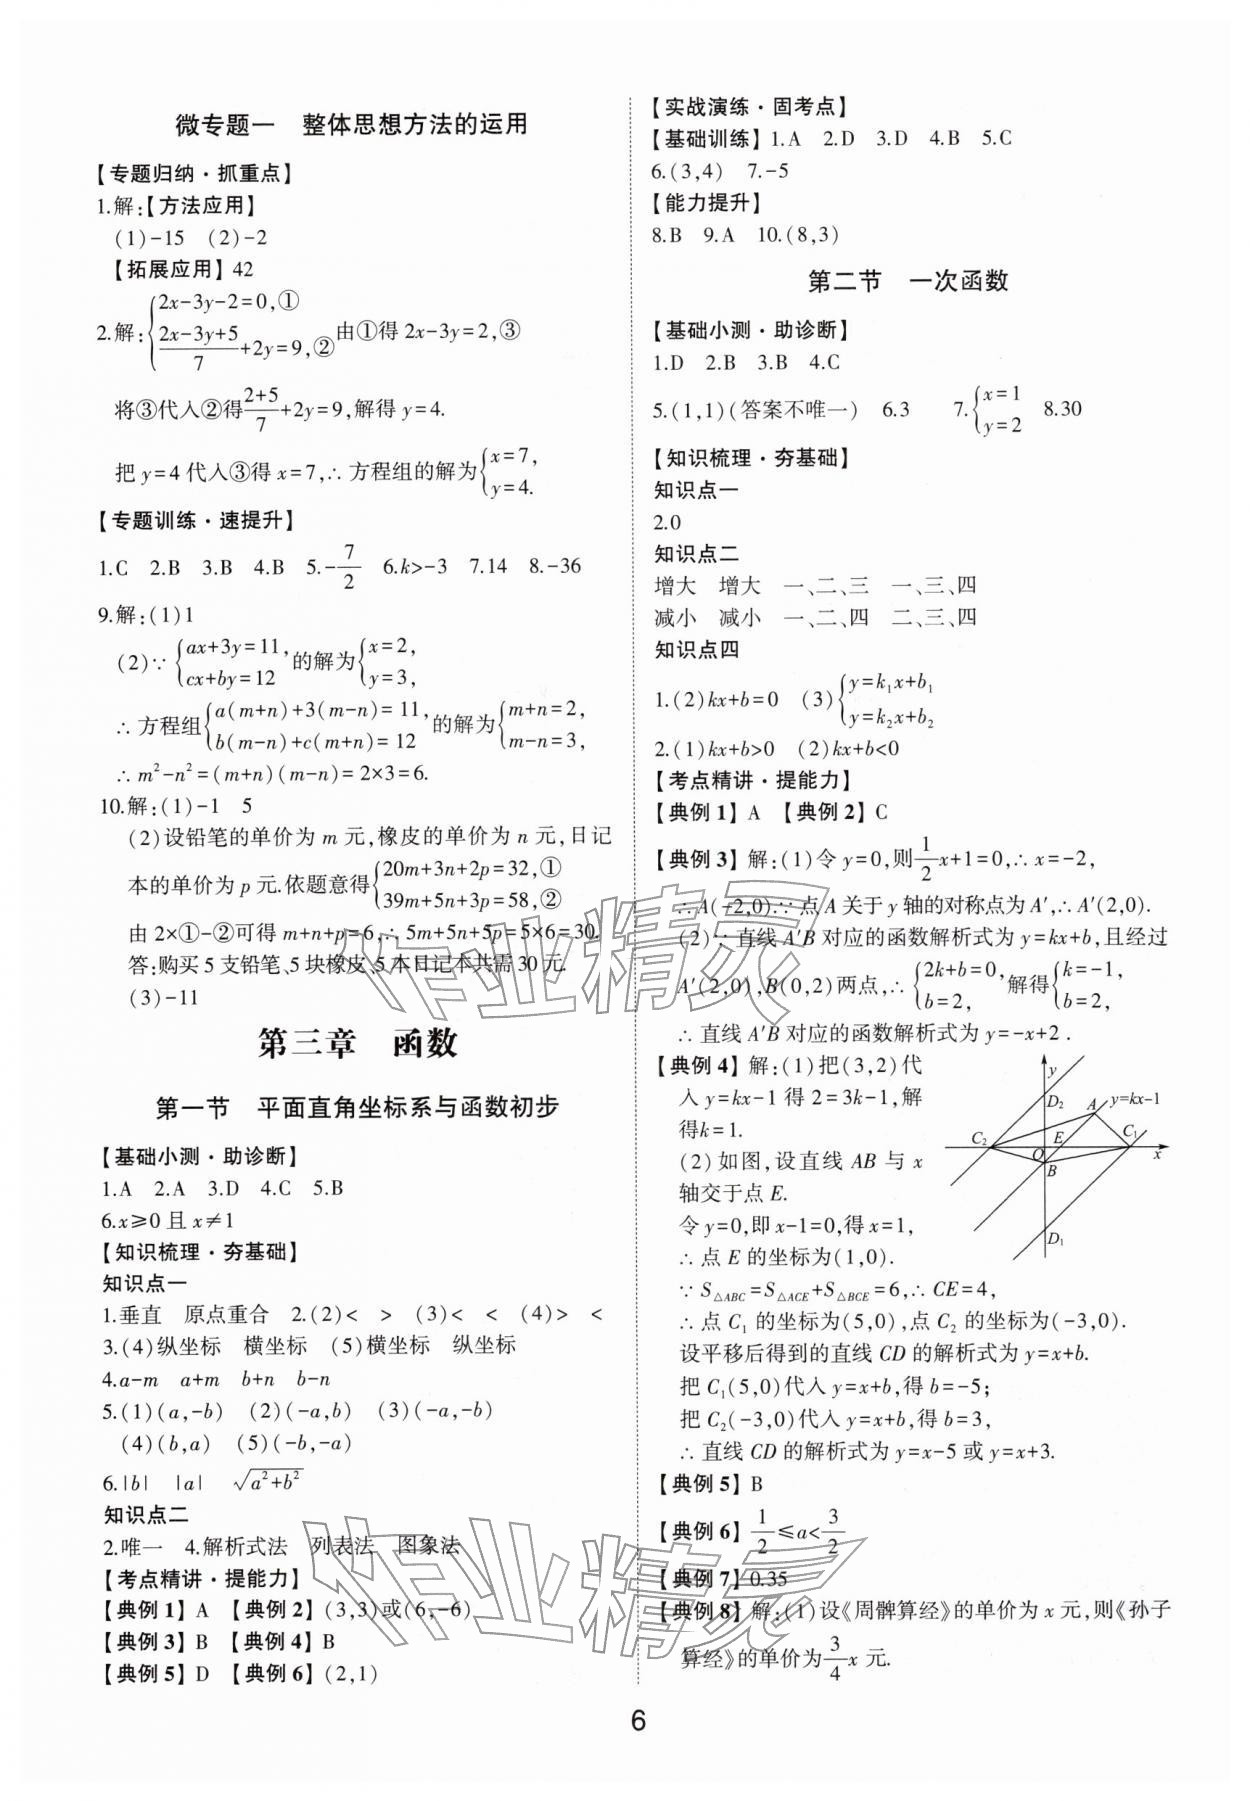 微专题一　整体思想方法的运用
【专题归纳·抓重点】
1.解:【方法应用】
(1)-15　(2)-2
【拓展应用】42
2.解:{2x-3y-2=0,① (2x-3y+5)/7+2y=9,② 由①得2x-3y=2,③
将③代入②得(2+5)/7+2y=9,解得y=4.
把y=4代入③得x=7,∴方程组的解为{x=7, y=4.
【专题训练·速提升】
1.C　2.B　3.B　4.B　5.-7/2　6.k>-3　7.14　8.-36
9.解:(1)1
(2)∵{ax+3y=11, cx+by=12 的解为{x=2, y=3,
∴方程组{a(m+n)+3(m-n)=11, b(m-n)+c(m+n)=12 的解为{m+n=2, m-n=3,
∴m²-n²=(m+n)(m-n)=2×3=6.
10.解:(1)-1　5
(2)设铅笔的单价为m元,橡皮的单价为n元,日记
本的单价为p元.依题意得{20m+3n+2p=32,① 39m+5n+3p=58,②
由2×①-②可得m+n+p=6,∴5m+5n+5p=5×6=30.
答:购买5支铅笔、5块橡皮、5本日记本共需30元.
(3)-11
第三章　函数
第一节　平面直角坐标系与函数初步
【基础小测·助诊断】
1.A　2.A　3.D　4.C　5.B
6.x≥0且x≠1
【知识梳理·夯基础】
知识点一
1.垂直　原点重合　2.(2)<　>　(3)<　<　(4)>　<
3.(4)纵坐标　横坐标　(5)横坐标　纵坐标
4.a-m　a+m　b+n　b-n
5.(1)(a,-b)　(2)(-a,b)　(3)(-a,-b)
(4)(b,a)　(5)(-b,-a)
6.|b|　|a|　√(a²+b²)
知识点二
2.唯一　4.解析式法　列表法　图象法
【考点精讲·提能力】
【典例1】A　【典例2】(3,3)或(6,-6)
【典例3】B　【典例4】B
【典例5】D　【典例6】(2,1)
【实战演练·固考点】
【基础训练】1.A　2.D　3.D　4.B　5.C
6.(3,4)　7.-5
【能力提升】
8.B　9.A　10.(8,3)
第二节　一次函数
【基础小测·助诊断】
1.D　2.B　3.B　4.C
5.(1,1)(答案不唯一)　6.3　7.{x=1 y=2　8.30
【知识梳理·夯基础】
知识点一
2.0
知识点二
增大　增大　一、二、三　一、三、四
减小　减小　一、二、四　二、三、四
知识点四
1.(2)kx+b=0　(3){y=k₁x+b₁ y=k₂x+b₂
2.(1)kx+b>0　(2)kx+b<0
【考点精讲·提能力】
【典例1】A　【典例2】C
【典例3】解:(1)令y=0,则1/2x+1=0,∴x=-2,
∴A(-2,0).∵点A关于y轴的对称点为A′,∴A′(2,0).
(2)∵直线A′B对应的函数解析式为y=kx+b,且经过
A′(2,0),B(0,2)两点,∴{2k+b=0, b=2, 解得{k=-1, b=2,
∴直线A′B对应的函数解析式为y=-x+2.
【典例4】解:(1)把(3,2)代
入y=kx-1得2=3k-1,解
得k=1.
(2)如图,设直线AB与x
轴交于点E.
令y=0,即x-1=0,得x=1,
∴点E的坐标为(1,0).
y
D₂
A
y=kx-1
C₂
E
C₁
O
x
B
D₁
∵S△ABC=S△ACE+S△BCE=6,∴CE=4,
∴点C₁的坐标为(5,0),点C₂的坐标为(-3,0).
设平移后得到的直线CD的解析式为y=x+b.
把C₁(5,0)代入y=x+b,得b=-5;
把C₂(-3,0)代入y=x+b,得b=3,
∴直线CD的解析式为y=x-5或y=x+3.
【典例5】B
【典例6】1/2≤a<3/2
【典例7】0.35
【典例8】解:(1)设《周髀算经》的单价为x元,则《孙子
算经》的单价为3/4x元.
6
作业精灵
作业精灵